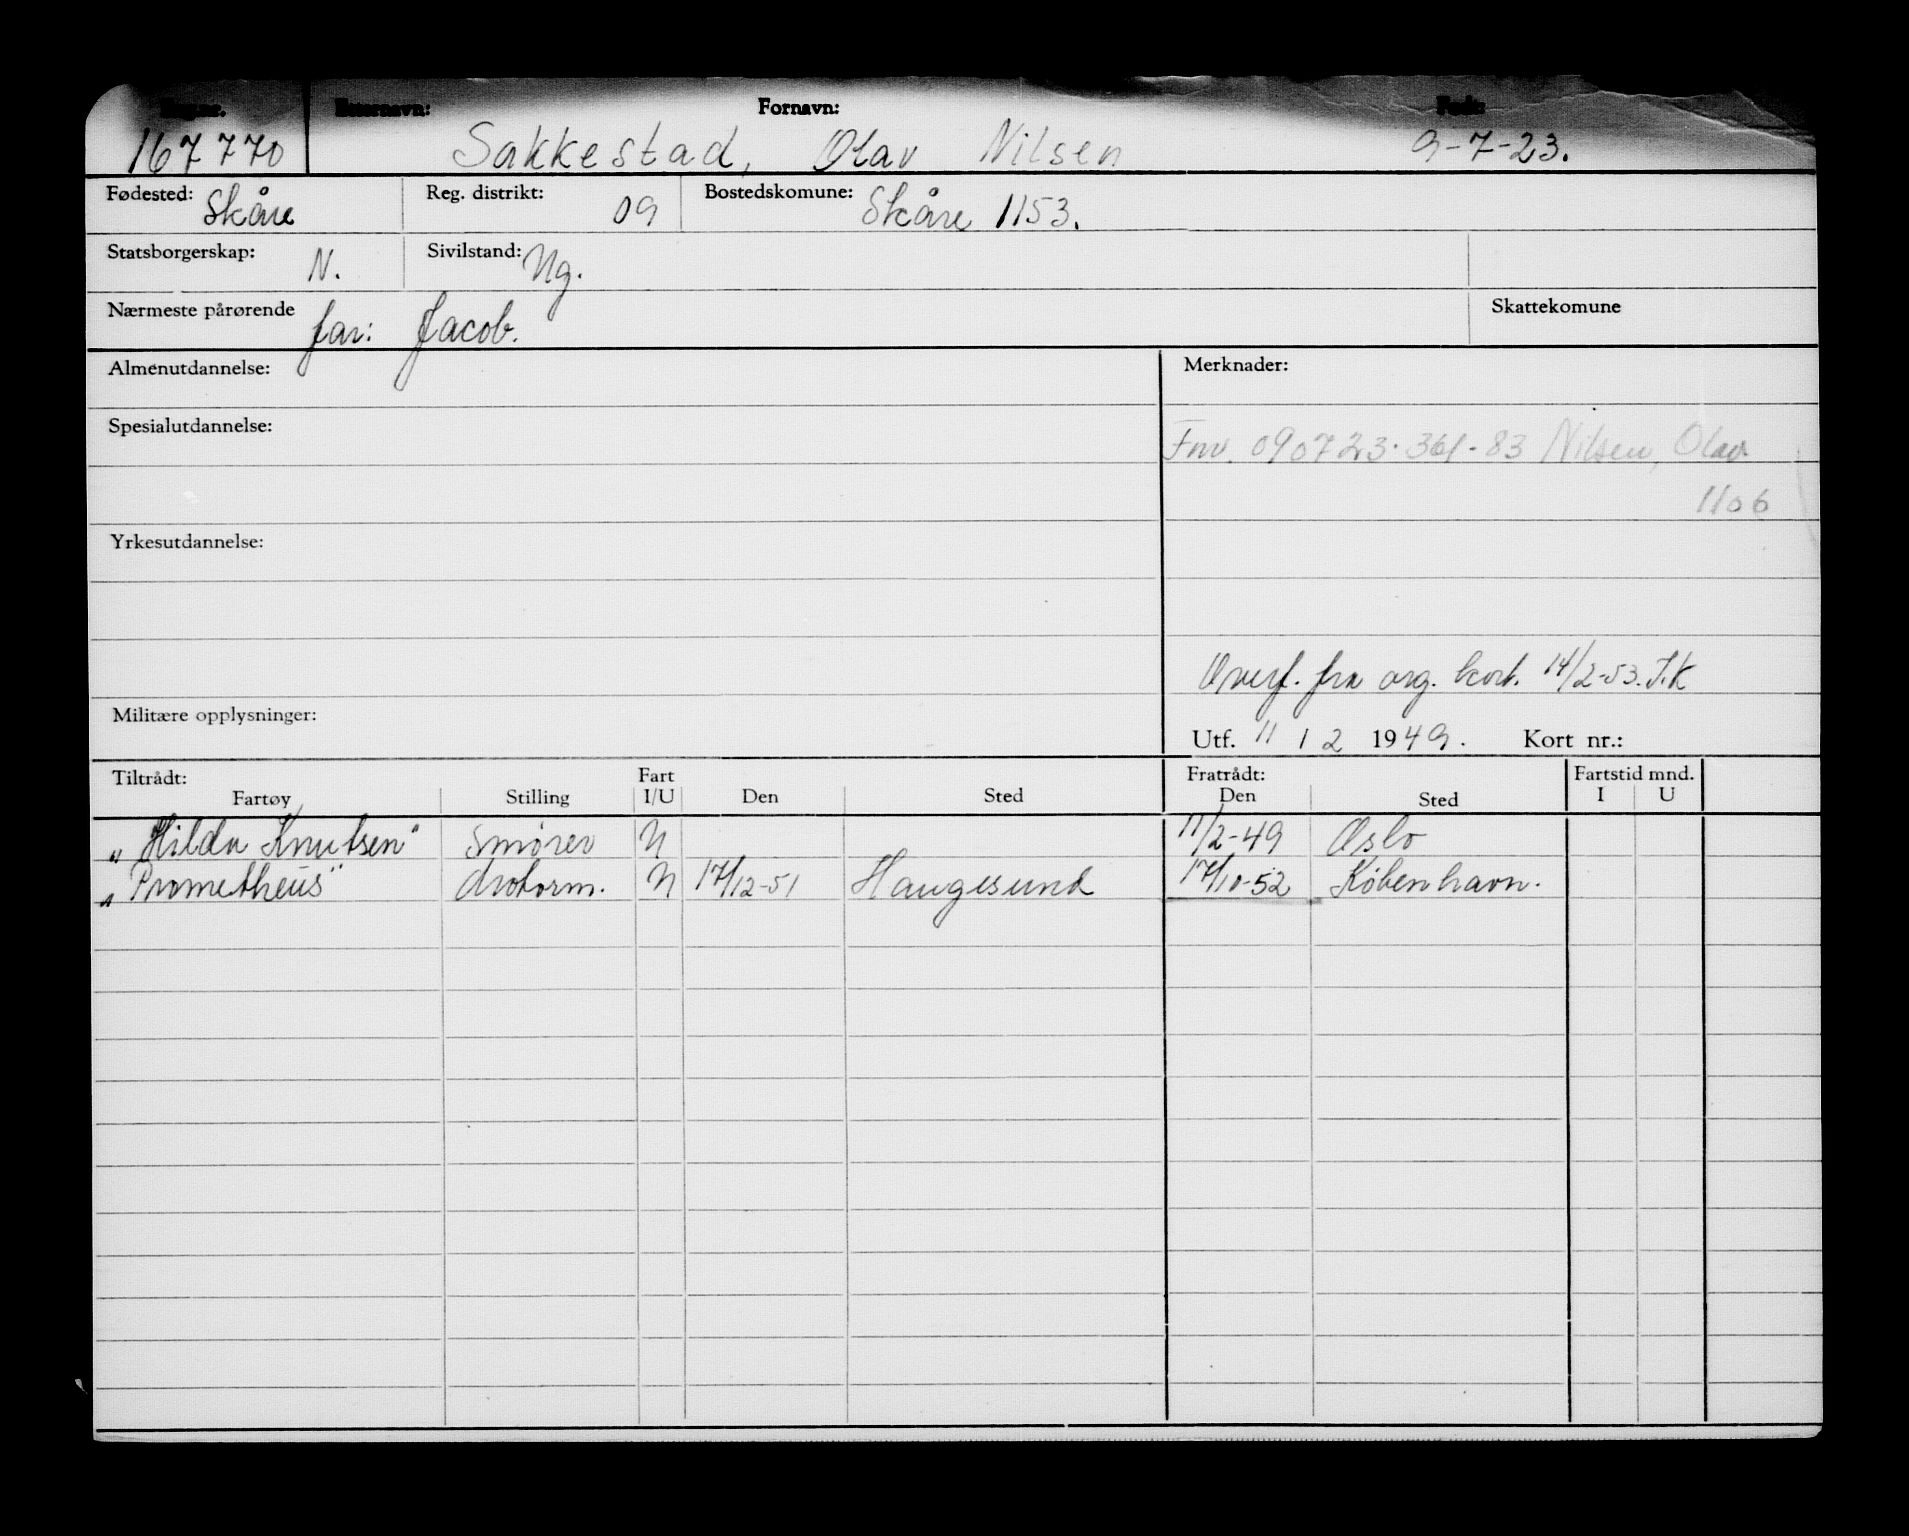 Reg.nr. Etternavn: Fornavn: Født:
167770 Sakkestad, Olav Nilsen 9-7-23.
Fødested: Skåre Reg. distrikt: 09 Bostedskomune: Skåre 1153.
Statsborgerskap: N. Sivilstand: Ug.
Nærmeste pårørende far: Jacob. Skattekomune
Almenutdannelse: Merknader:
Spesialutdannelse:
Fnr. 090723·361-83 Nilsen, Olav
1106
Yrkesutdannelse:
Overf. fra org. kort. 14/2-53. T.K
Militære opplysninger:
Utf. 11 / 2 1949. Kort nr.:
Tiltrådt: Fart Fratrådt: Fartstid mnd.
Fartøy Stilling I/U Den Sted Den Sted I U
"Hilda Knutsen" Smører U 11/2-49 Oslo
"Prometheus" drotorm. U 17/12-51 Haugesund 17/10-52 København.